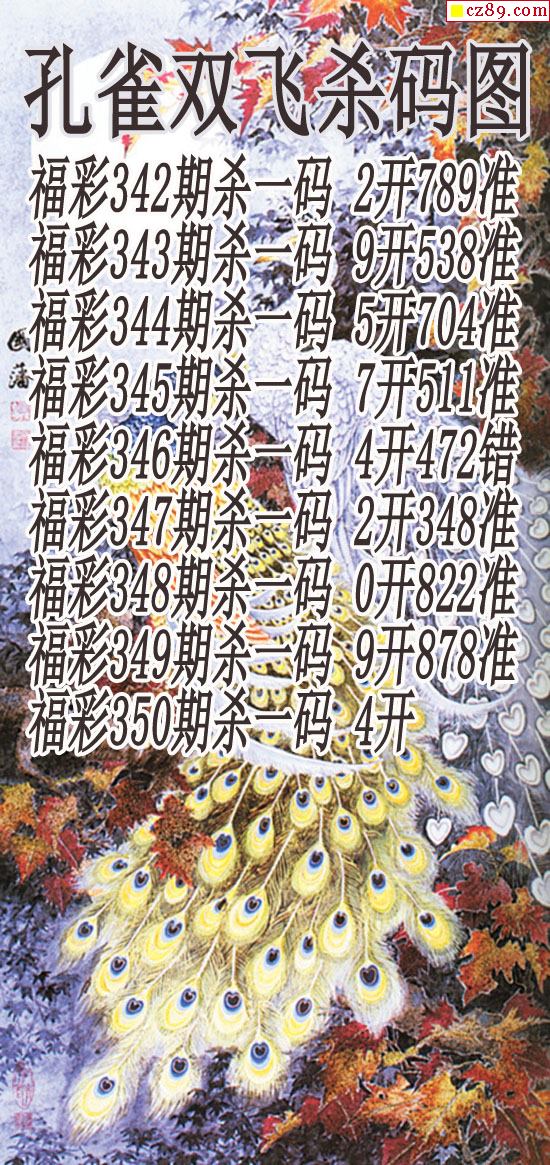 cz89.com
孔雀双飞杀码图
福彩342期杀一码 2开789准
福彩343期杀一码 9开538准
福彩344期杀一码 5开704准
福彩345期杀一码 7开511准
福彩346期杀一码 4开472错
福彩347期杀一码 2开348准
福彩348期杀一码 0开822准
福彩349期杀一码 9开878准
福彩350期杀一码 4开